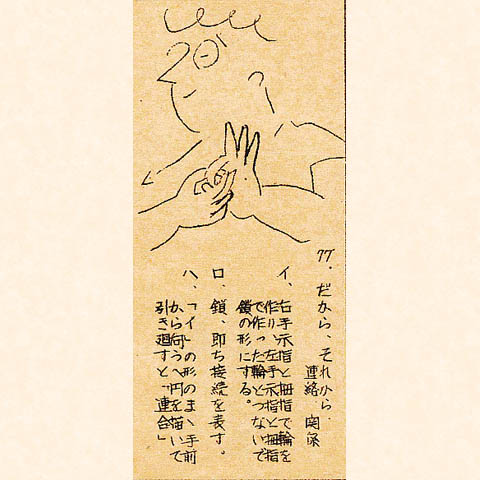 77. だから、それから、
連絡、関係
イ、右手示指と拇指で輪を
作り左手示指と拇指
で作った輪とつないで
鎖の形にする。
ロ、鎖、即ち接続を表す。
ハ、「イ」の形のまゝ手前
から向うへ円を描いて
引き廻すと「連合」